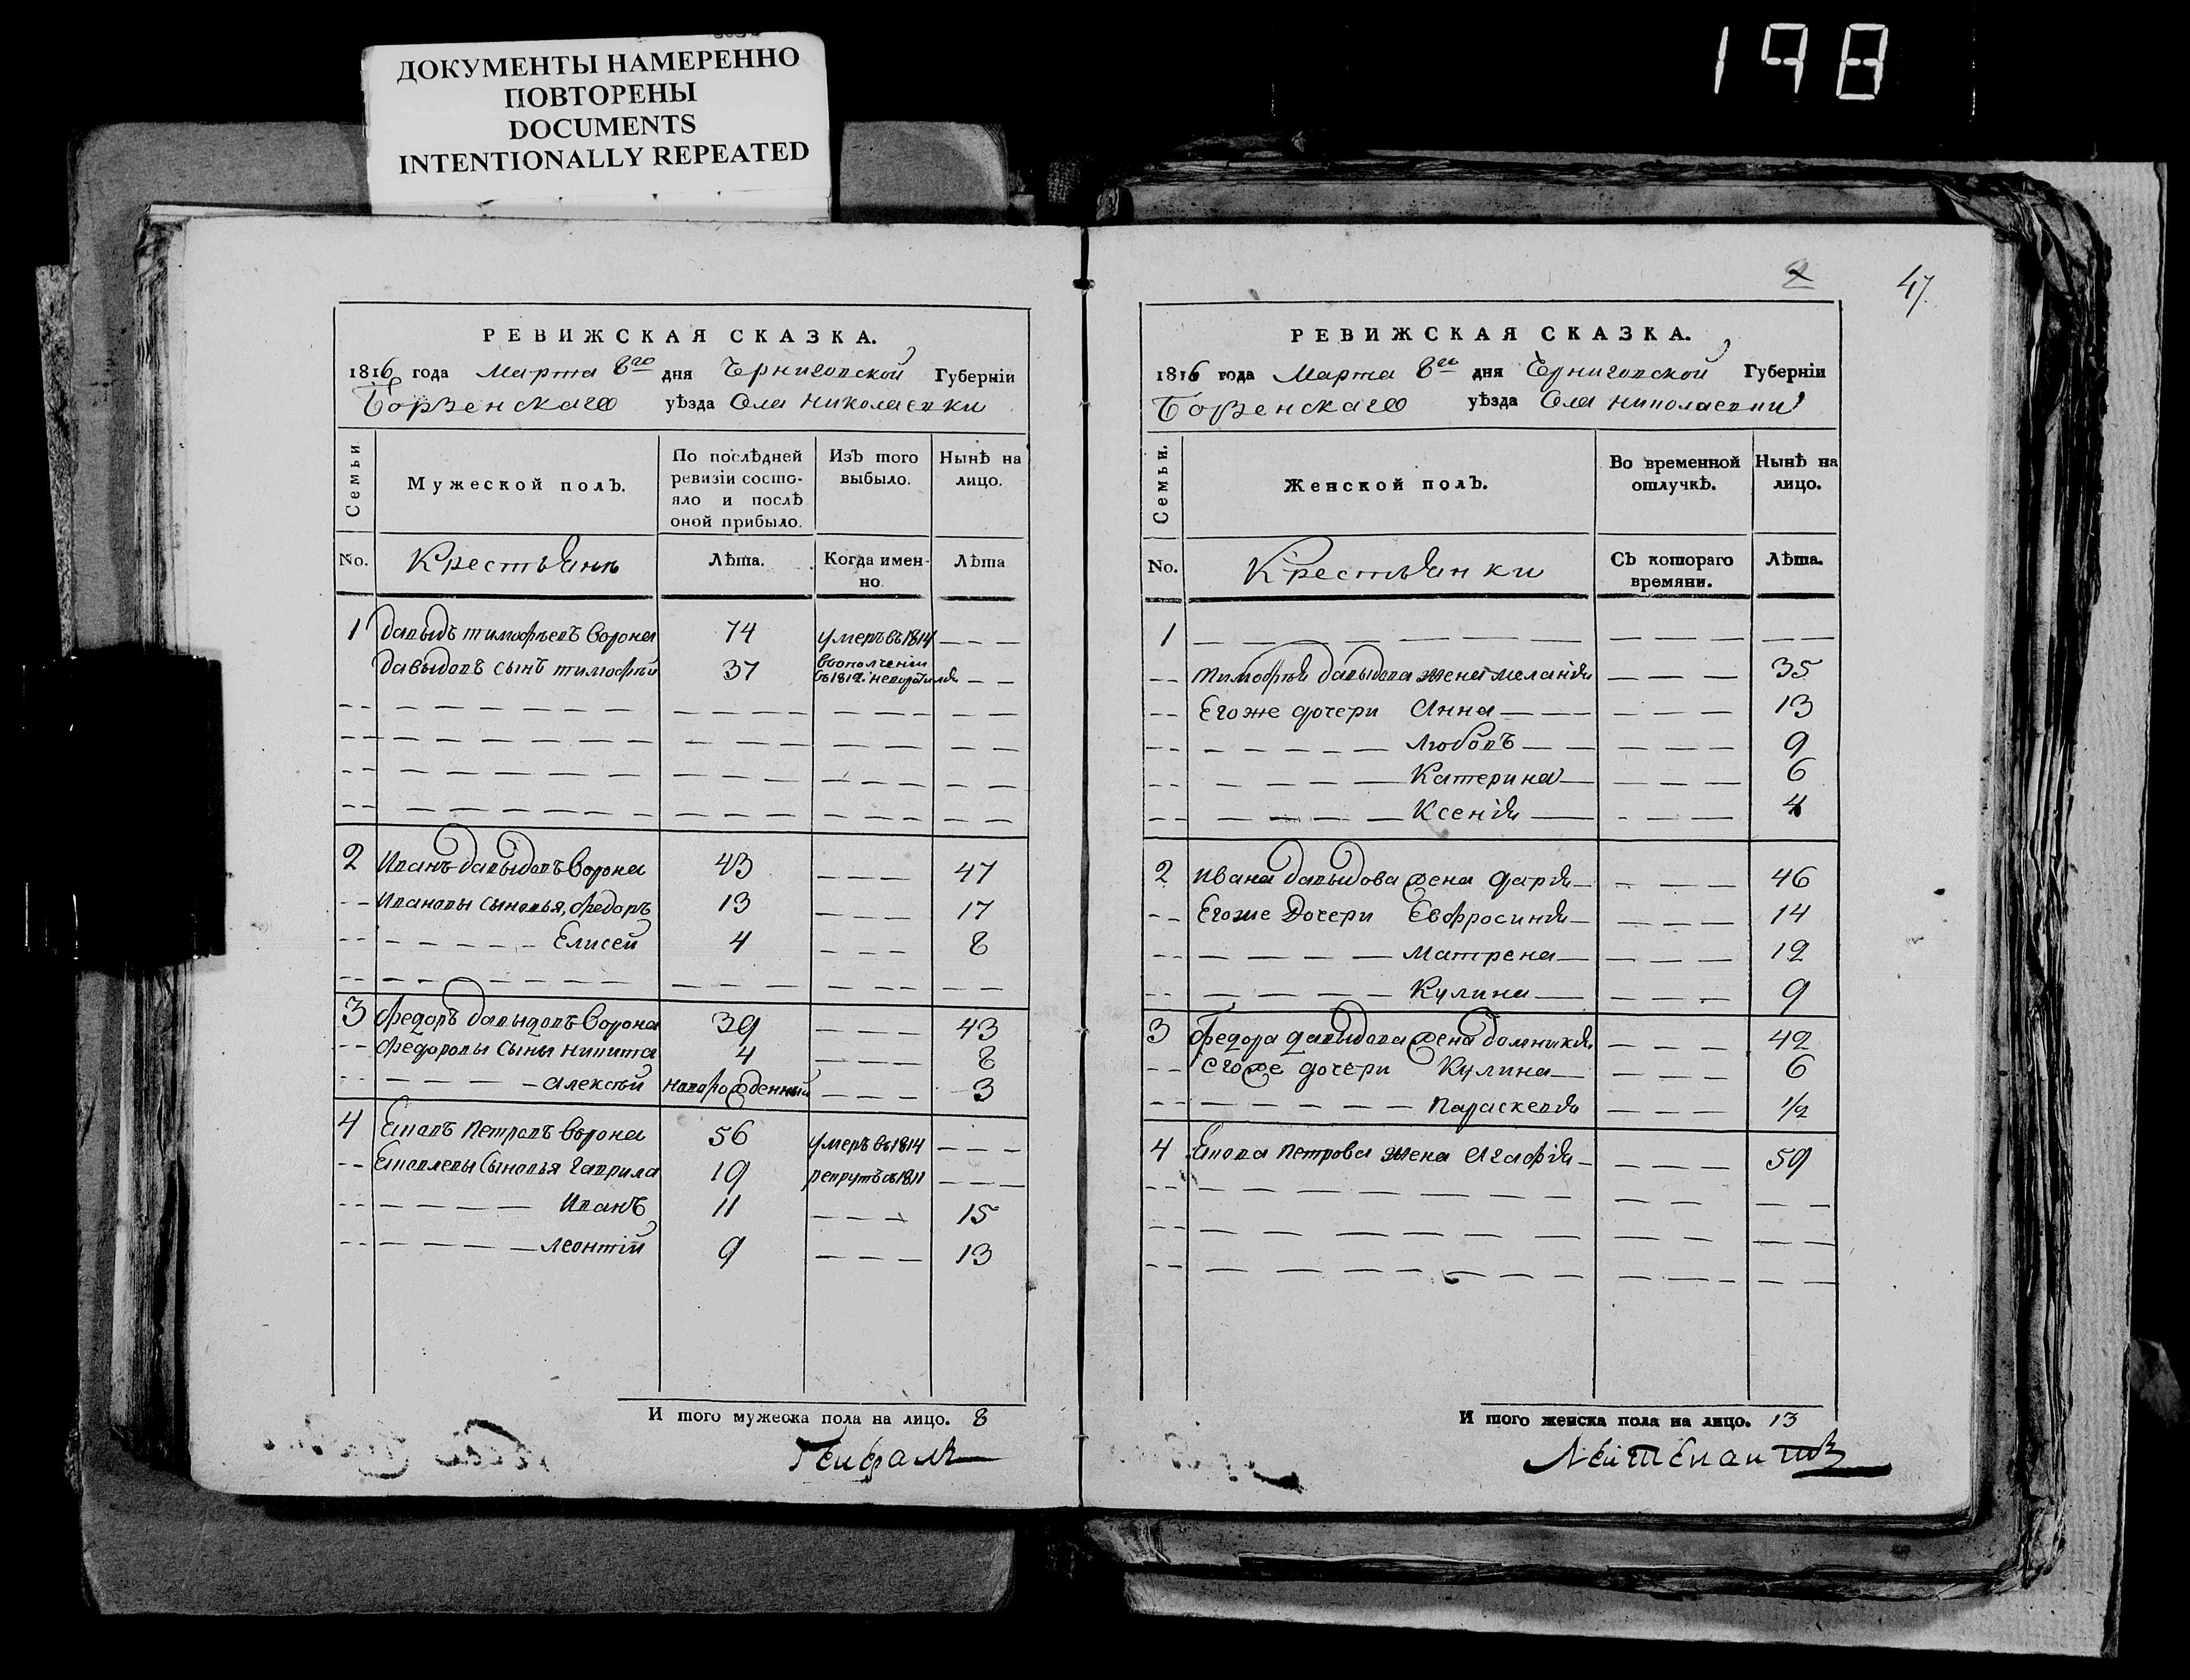 198
ДОКУМЕНТЫ НАМЕРЕННО
ПОВТОРЕНЫ
DOCUMENTS
INTENTIONALLY REPEATED
РЕВИЖСКАЯ СКАЗКА.
1816 года Марта 8го дня Черниговской Губерніи
Борзенскаго уѣзда Села Николаевки
Семьи
Мужеской полъ.
По послѣдней ревизіи состояло и послѣ оной прибыло.
Изъ того выбыло.
Нынѣ на лицо.
No. Крестьяне Лѣта. Когда именно Лѣта
1 Давыдъ Тимофѣевъ Ворона 74 умеръ въ 1814 — — —
Давыдовъ сынъ Тимофѣй 37 въ ополченіи въ 1812. невозвратился — —
2 Иванъ Давыдовъ Ворона 43 — — — 47
— — Ивановы Сыновья, Федоръ 13 — — — 17
— — — — — — — Елисей 4 — — — 8
3 Федоръ Давыдовъ Ворона 39 — — — 43
— — Федоровы Сыны Никита 4 — — — 8
— — — — — — Алексѣй новорожденный — — — 3
4 Еповъ Петровъ Ворона 56 умеръ въ 1814 — — —
— — Сыновья Гаврила 19 рекрутъ въ 1811 — — —
— — — — — — — Иванъ 11 — — — 15
— — — — — — — Леонтій 9 — — — 13
И того мужеска пола на лицо. 8
2 47.
РЕВИЖСКАЯ СКАЗКА.
1816 года Марта 8го дня Черниговской Губерніи
Борзенскаго уѣзда Села Николаевки
Семьи.
Женской полъ.
Во временной отлучкѣ.
Нынѣ на лицо.
No. Крестьянки Съ котораго времяни. Лѣта.
1 — — — — — — — — — — —
— — Тимофѣя Давыдова жена Меланія — — — 35
— — Егоже дочери Анна — — — — — 13
— — — — — — — Любовъ — — — — — 9
— — — — — — — Катерина — — — — 6
— — — — — — — Ксенія — — — — 4
2 Ивана Давыдова жена Дарія — — — — 46
— — Егоже Дочери Евфросинія — — — — 14
— — — — — — — Матрена — — — — 12
— — — — — — — Кулина — — — — 9
3 Федора Давыдова жена Домникія — — — 42
— — Егоже дочери Кулина — — — — 6
— — — — — — — Параскевія — — — 1/2
4 Петрова жена Агафія — — — — 59
И того женска пола на лицо. 13
Лейтенантъ